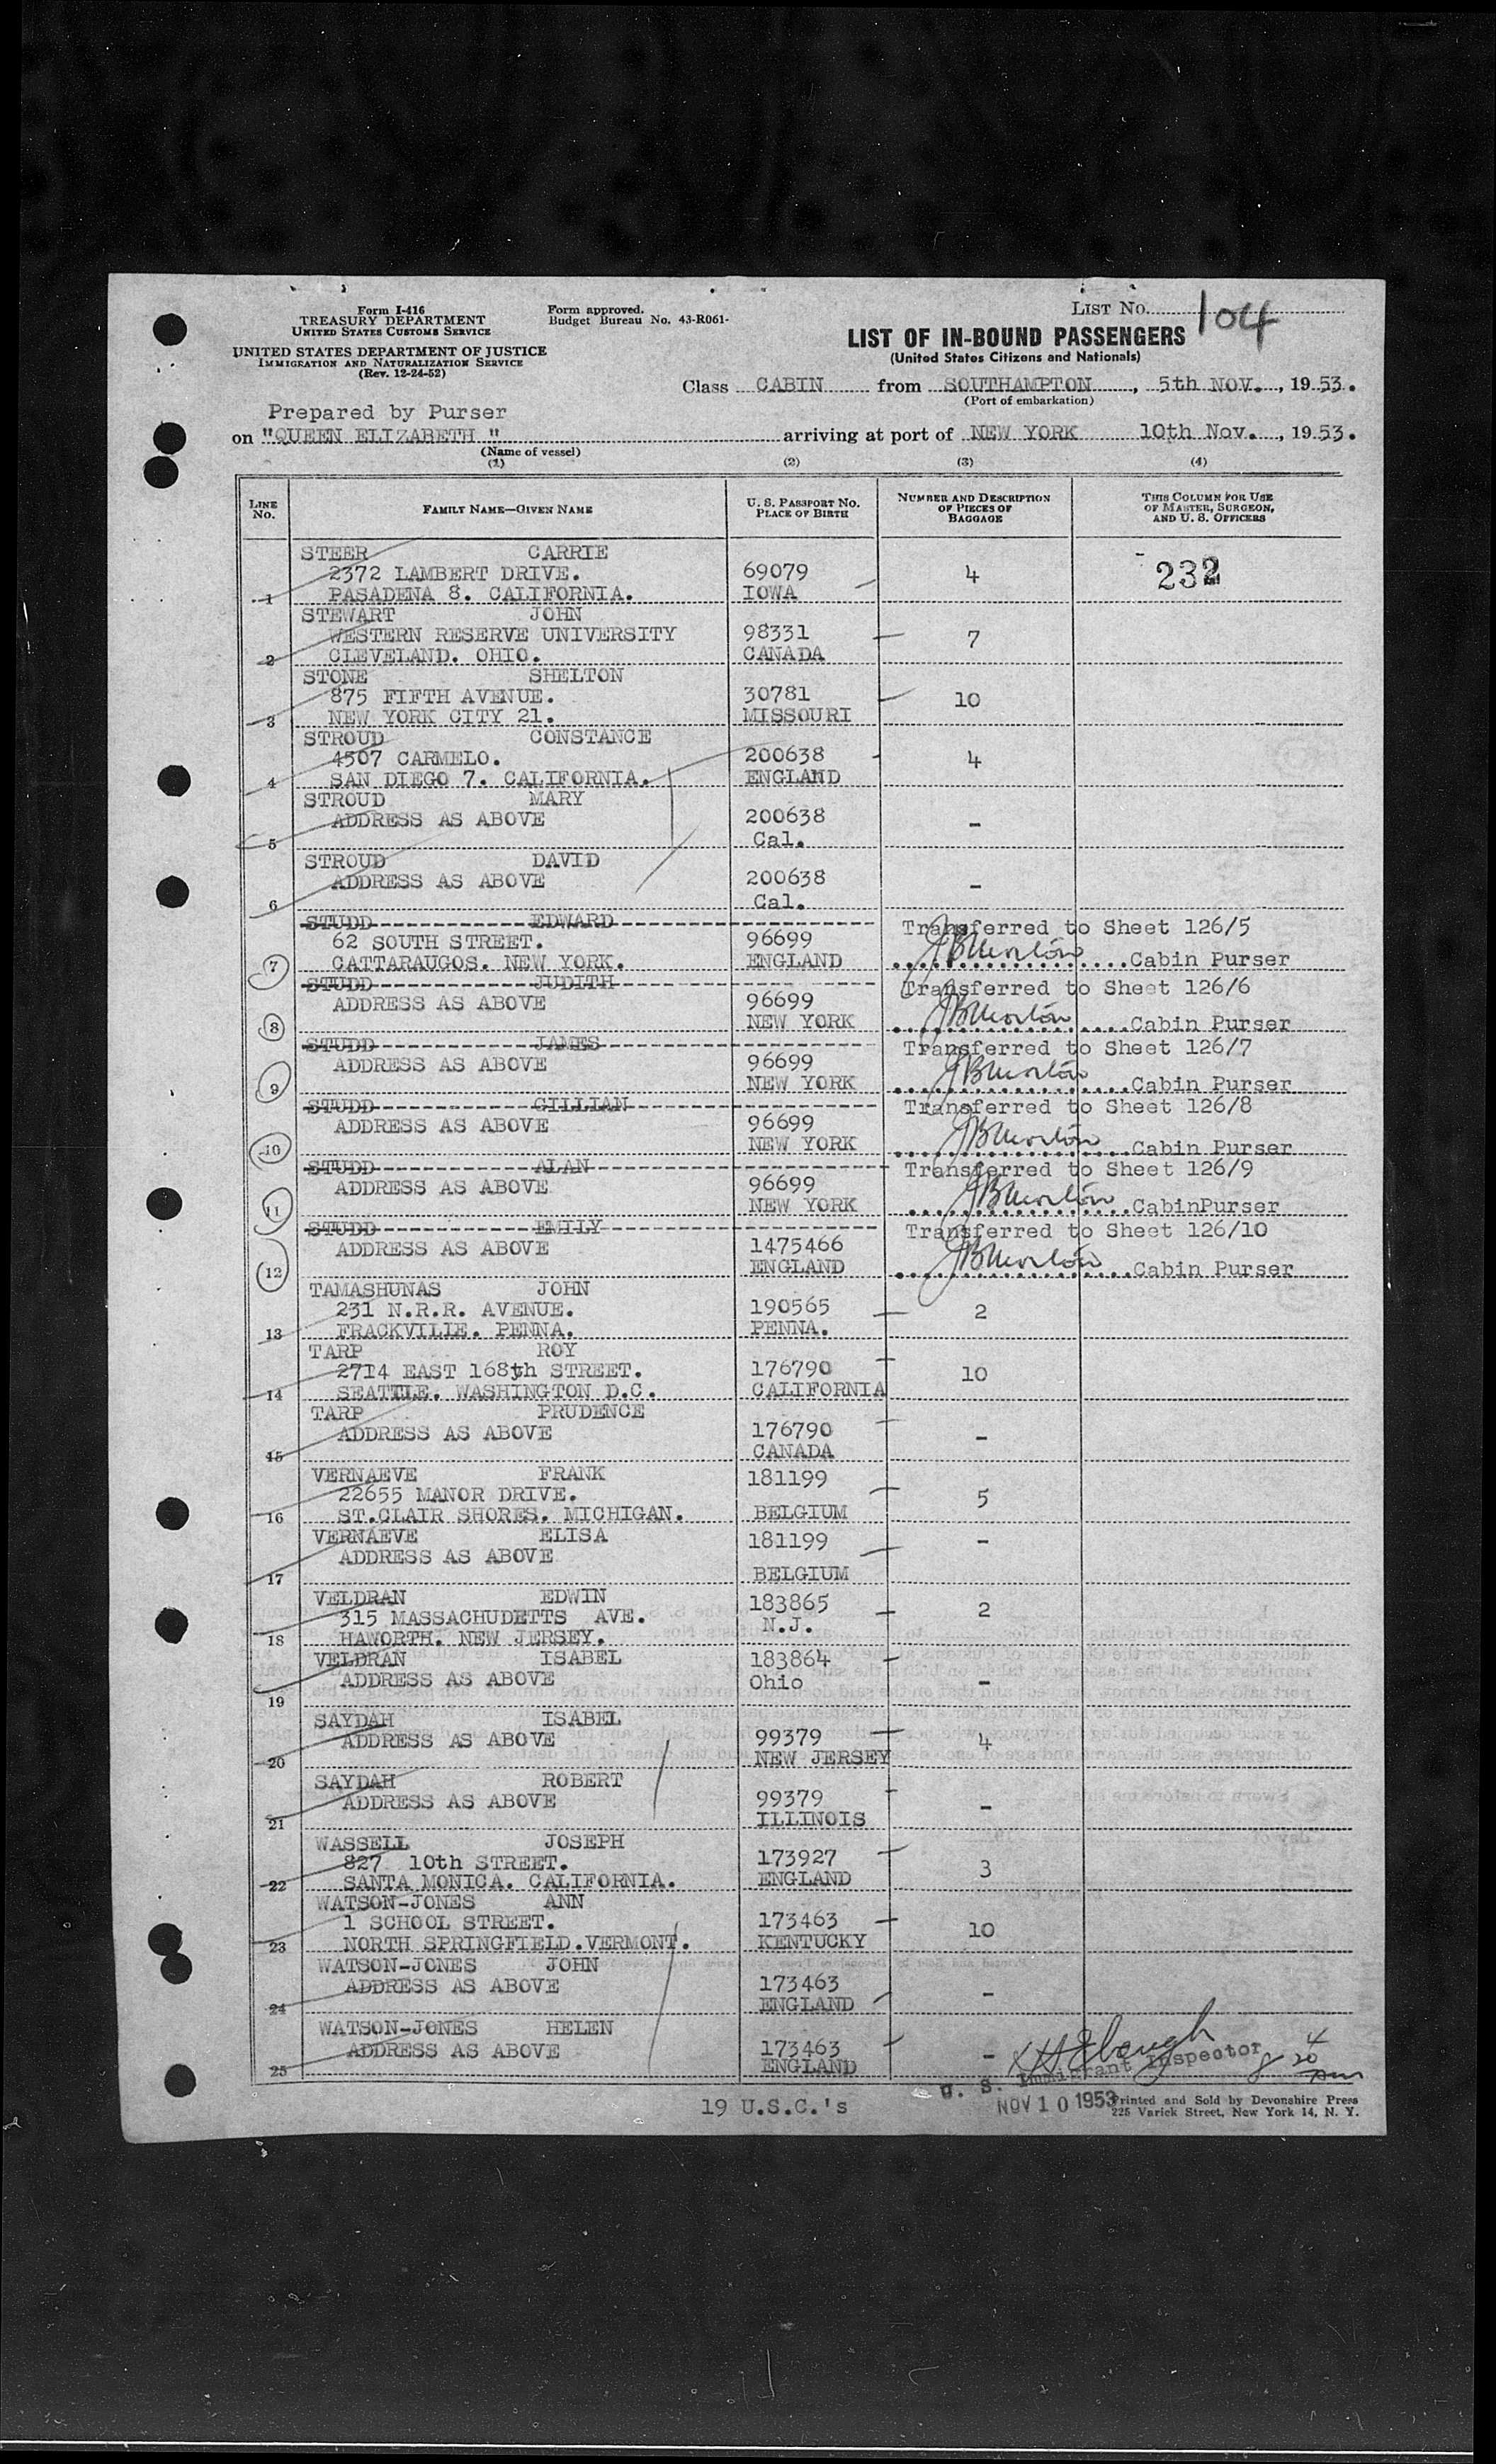 Form I-416
TREASURY DEPARTMENT
UNITED STATES CUSTOMS SERVICE
Form approved.
Budget Bureau No. 43-R061-
LIST NO. 104
UNITED STATES DEPARTMENT OF JUSTICE
IMMIGRATION AND NATURALIZATION SERVICE
(Rev. 12-24-52)
LIST OF IN-BOUND PASSENGERS
(United States Citizens and Nationals)
Class CABIN from SOUTHAMPTON, 5th NOV., 1953.
(Port of embarkation)
Prepared by Purser
on "QUEEN ELIZABETH " arriving at port of NEW YORK 10th Nov., 1953.
(Name of vessel)
(1) (2) (3) (4)
LINE NO. FAMILY NAME—GIVEN NAME U. S. PASSPORT NO. PLACE OF BIRTH NUMBER AND DESCRIPTION OF PIECES OF BAGGAGE THIS COLUMN FOR USE OF MASTER, SURGEON, AND U. S. OFFICERS
STEER CARRIE
2372 LAMBERT DRIVE. 69079 4 232
1 PASADENA 8. CALIFORNIA. IOWA
STEWART JOHN
WESTERN RESERVE UNIVERSITY 98331 7
2 CLEVELAND. OHIO. CANADA
STONE SHELTON
875 FIFTH AVENUE. 30781 10
3 NEW YORK CITY 21. MISSOURI
STROUD CONSTANCE
4507 CARMELO. 200638 4
4 SAN DIEGO 7. CALIFORNIA. ENGLAND
STROUD MARY
ADDRESS AS ABOVE 200638 -
5 Cal.
STROUD DAVID
ADDRESS AS ABOVE 200638 -
6 Cal.
STUDD EDWARD Transferred to Sheet 126/5
62 SOUTH STREET. 96699
7 CATTARAUGOS. NEW YORK. ENGLAND Cabin Purser
STUDD JUDITH Transferred to Sheet 126/6
ADDRESS AS ABOVE 96699
8 NEW YORK Cabin Purser
STUDD JAMES Transferred to Sheet 126/7
ADDRESS AS ABOVE 96699
9 NEW YORK Cabin Purser
STUDD GILLIAN Transferred to Sheet 126/8
ADDRESS AS ABOVE 96699
10 NEW YORK Cabin Purser
STUDD ALAN Transferred to Sheet 126/9
ADDRESS AS ABOVE 96699
11 NEW YORK CabinPurser
STUDD EMILY Transferred to Sheet 126/10
ADDRESS AS ABOVE 1475466
12 ENGLAND Cabin Purser
TAMASHUNAS JOHN
231 N.R.R. AVENUE. 190565 2
13 FRACKVILLE. PENNA. PENNA.
TARP ROY
2714 EAST 168th STREET. 176790 10
14 SEATTLE. WASHINGTON D.C. CALIFORNIA
TARP PRUDENCE
ADDRESS AS ABOVE 176790 -
15 CANADA
VERNAEVE FRANK 181199
22655 MANOR DRIVE. 5
16 ST.CLAIR SHORES. MICHIGAN. BELGIUM
VERNAEVE ELISA 181199 -
ADDRESS AS ABOVE
17 BELGIUM
VELDRAN EDWIN 183865 2
315 MASSACHUDETTS AVE. N.J.
18 HAWORTH. NEW JERSEY.
VELDRAN ISABEL 183864
ADDRESS AS ABOVE Ohio -
19
SAYDAH ISABEL
ADDRESS AS ABOVE 99379 4
20 NEW JERSEY
SAYDAH ROBERT
ADDRESS AS ABOVE 99379 -
21 ILLINOIS
WASSELL JOSEPH
827 10th STREET. 173927 3
22 SANTA MONICA. CALIFORNIA. ENGLAND
WATSON-JONES ANN
1 SCHOOL STREET. 173463 10
23 NORTH SPRINGFIELD.VERMONT. KENTUCKY
WATSON-JONES JOHN
ADDRESS AS ABOVE 173463 -
24 ENGLAND
WATSON-JONES HELEN
ADDRESS AS ABOVE 173463 -
25 ENGLAND
U. S. Immigrant Inspector
19 U.S.C.'s NOV 10 1953
Printed and Sold by Devonshire Press
225 Varick Street, New York 14, N. Y.